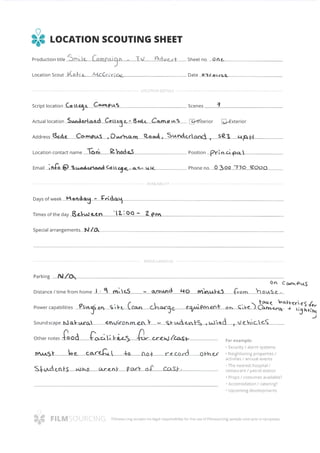 LOCATION SCOUTING SHEET
Production title Smile Campaign - TV Advert Sheet no one
Location Scout Katie McGivern Date
Script location College Campus Scenes 9
Actual location Sunderland College - Bede Campus Interior Exterior
Address Bede Campus, Durham Road, Sunderland, SR3 4AH
Location contact name Toni Rhodes Position principal
Email info@sunderlandcollege.ac.uk Phone no. 0300 770 8000
Days of week Monday - Friday
Times of the day Between 12:00 - 2pm
Special arrangements N/A
Parking N/A
on campus
Distance / time from home 1.9 miles - around 40 minutes from house.
Power capabilities Plug on site (can charge equipment on site) take batteries for camera + lighting
Soundscape Natural environment - students, wind, vehicles
Other notes food facilities for crew/cast
must be careful to not record other
students who arent part of cast.
For example:
• Security + alarm systems
• Neighboring properties /
activities / annual events
• The nearest hospital /
restaurant / petrol station
• Props / costumes available?
• Accomodation / catering?
• Upcoming developments
FILMSOURCING